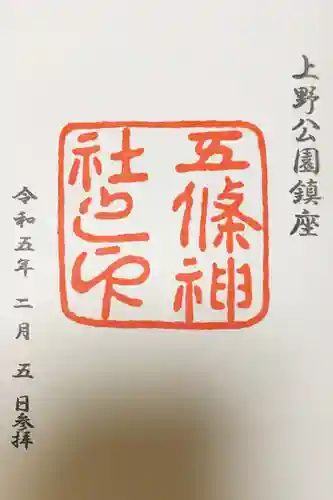 上野公園鎮座
五條神
社之印
令和五年 二月 五 日参拝